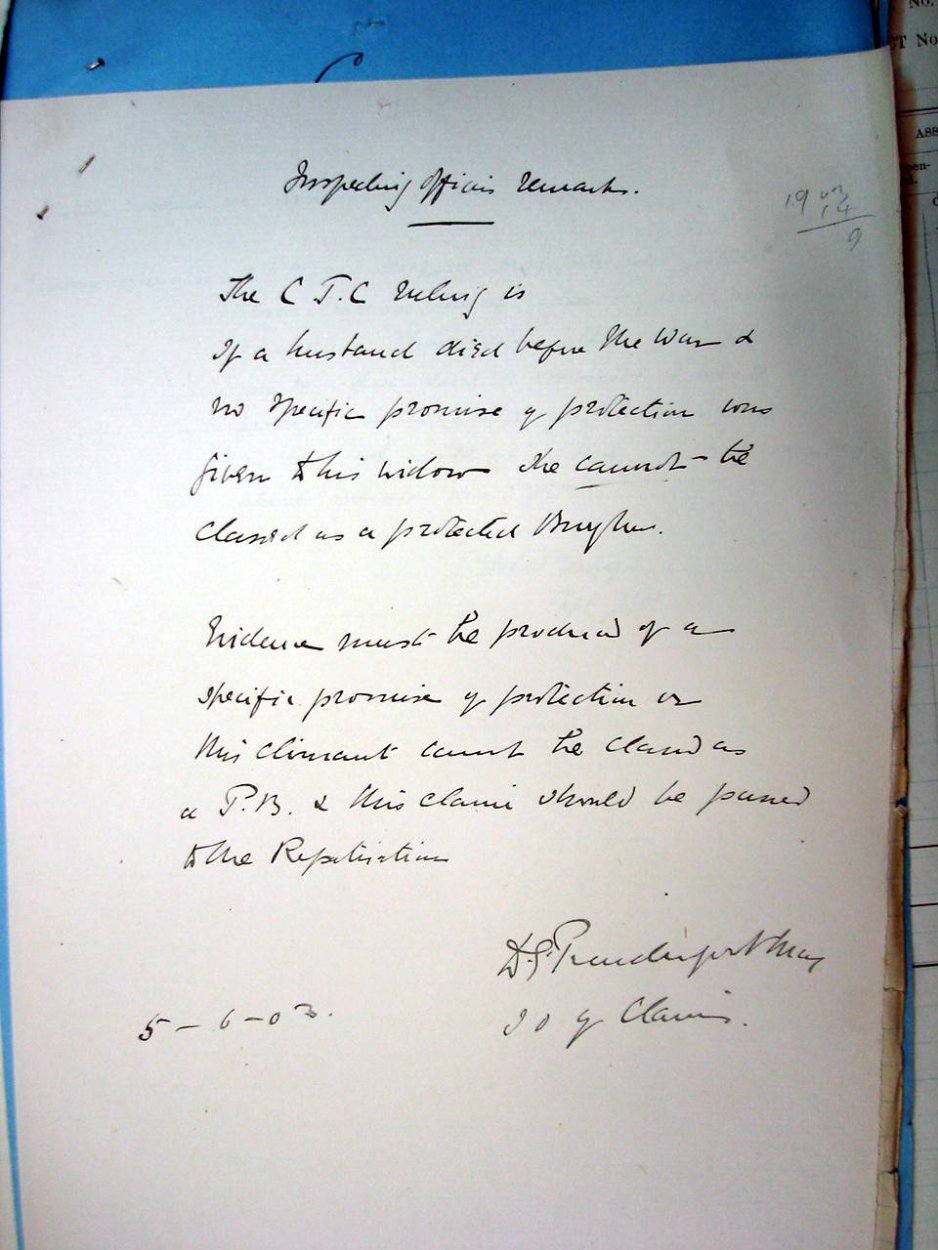 No.
T No
ASS
pen-
Inspecting Officers remarks.
19
9
The C J.C Ruling is
If a husband died before the War &
no specific promise of protection was
given to his widow she cannot be
classed as a protected Burgher.
Evidence must be produced of a
specific promise of protection or
this claimant cannot be classed as
a P.B. & this claim should be passed
to the Repatriation
D.G. Prendergast
I O of Claims.
5-6-03.